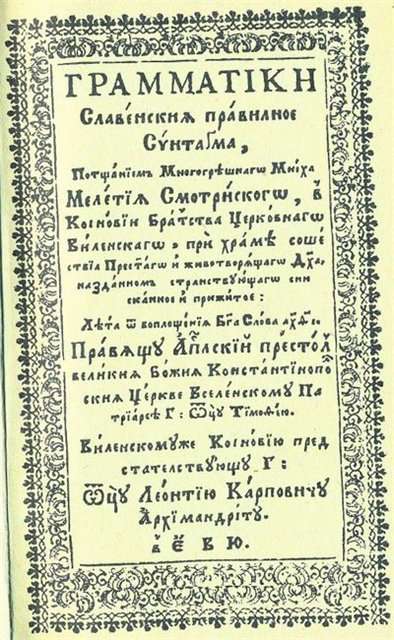 ГРАММАТІКИ
Славе́нския пра́вилное
Сѵ́нтаґма,
Потща́ніемъ Многогрѣ́шнагѡ Мні́ха
Меле́тїѧ Смотри́скогѡ, в̾
Коіно́вїи Бра́тства Церко́внагѡ
Ви́ленскагѡ, прѝ хра́мѣ соше́
ствїа Прест҃а́гѡ и҆ животворѧ́щагѡ Дх҃а,
назда́нномъ стра́нствꙋющагѡ сни
ска́нное и҆ прижи́тое:
Лѣ́та ѿ воплоще́нїѧ Бг҃а Сло́ва ҂а҃хѳ҃і.
Пра́вѧщꙋ А҆п҃лскїй престо́лъ
вели́кїѧ Бо́жїѧ Константінопо́
скїѧ Це́ркве Вселе́нскомꙋ Па
трїа́рсѣ Г: Ѻ҆ц҃ꙋ Тїмоѳе́ю.
Ви́ленскомꙋже Коіно́вїю пред
ста́телствꙋющꙋ Г:
Ѻ҆ц҃ꙋ Лео́нтїю Ка́рповичꙋ
А҆рхїмандрі́тꙋ.
в̾ Е҆́вю.